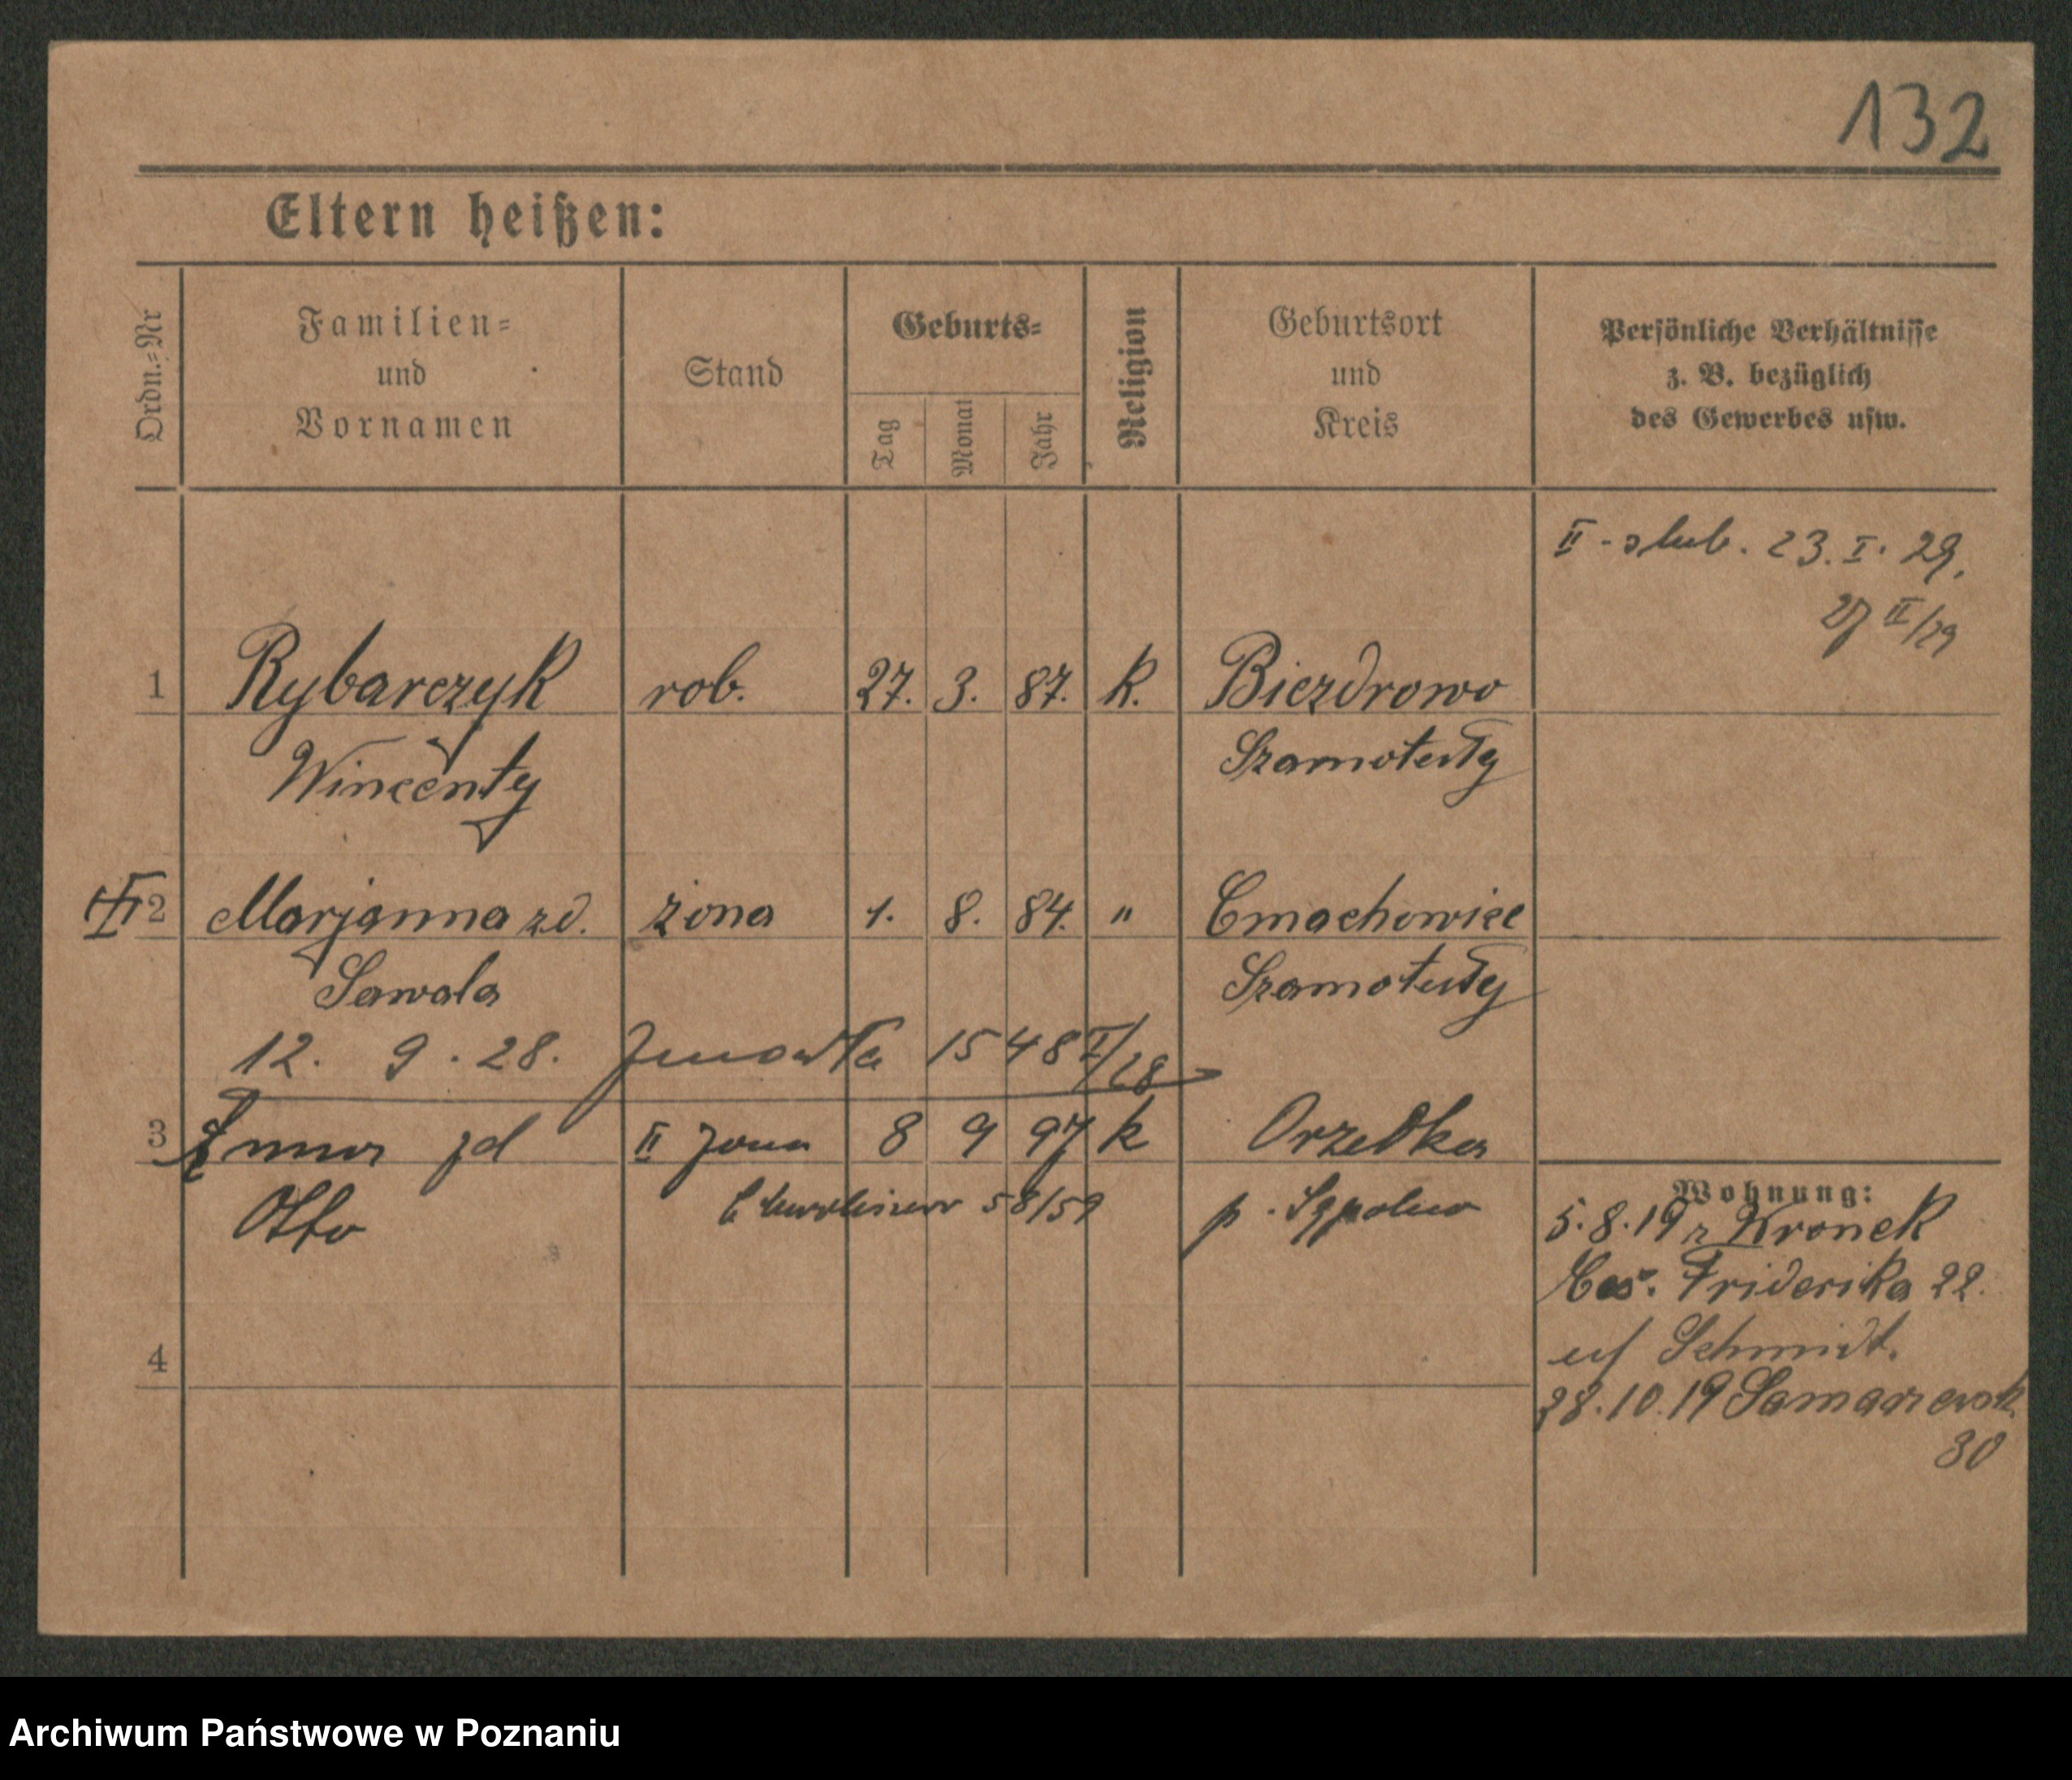 132
Eltern heißen:
Ordn.=Nr
Familien=
und
Vornamen
Stand
Geburts=
Tag
Monat
Jahr
Religion
Geburtsort
und
Kreis
Persönliche Verhältnisse
z. B. bezüglich
des Gewerbes usw.
II - slub. 23. I. 29.
27 II/29
1 Rybarczyk rob. 27. 3. 87. K. Biezdrowo
Wincenty Szamotuły
2 Marjanna zd. żona 1. 8. 84. " Cmachowice
Sawala Szamotuły
12. 9. 28. 1548 I/28
3 zd II żona 8 9 97 k
Otto 58/59 p.
Wohnung:
5.8.19 z Kronek
Ces. Friderika 22.
u/ Schmidt.
4
28.10.19
30
Archiwum Państwowe w Poznaniu